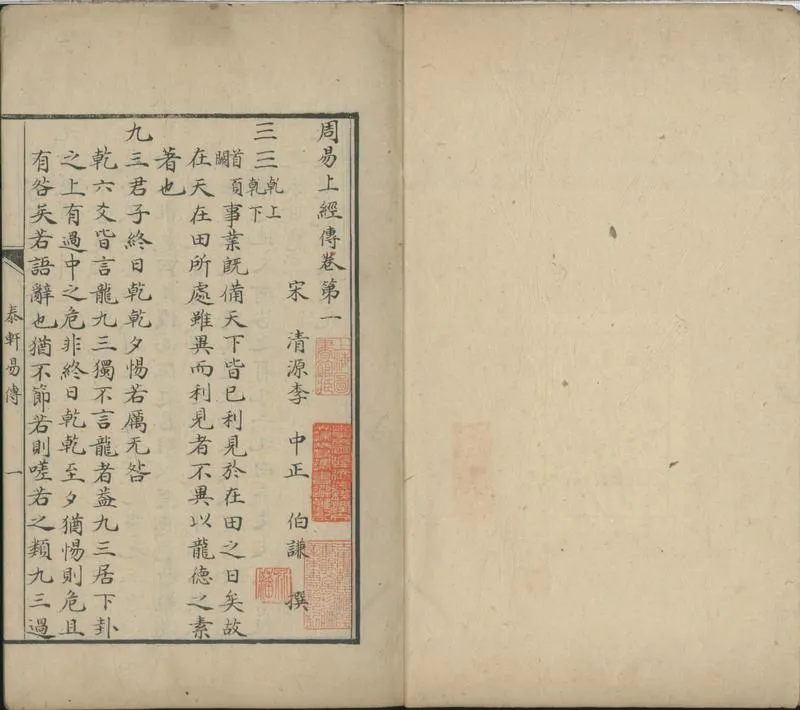 周易上經傳卷第一
宋　清源李　中正　伯謙　撰
☰☰乾上乾下
首頁闕事業既備天下皆已利見於在田之日矣故
在天在田所處雖異而利見者不異以龍德之素
著也
九三君子終日乾乾夕惕若厲无咎
乾六爻皆言龍九三獨不言龍者葢九三居下卦
之上有過中之危非終日乾乾至夕猶惕則危且
有咎矣若語辭也猶不節若則嗟若之類九三過
泰軒易傳　一